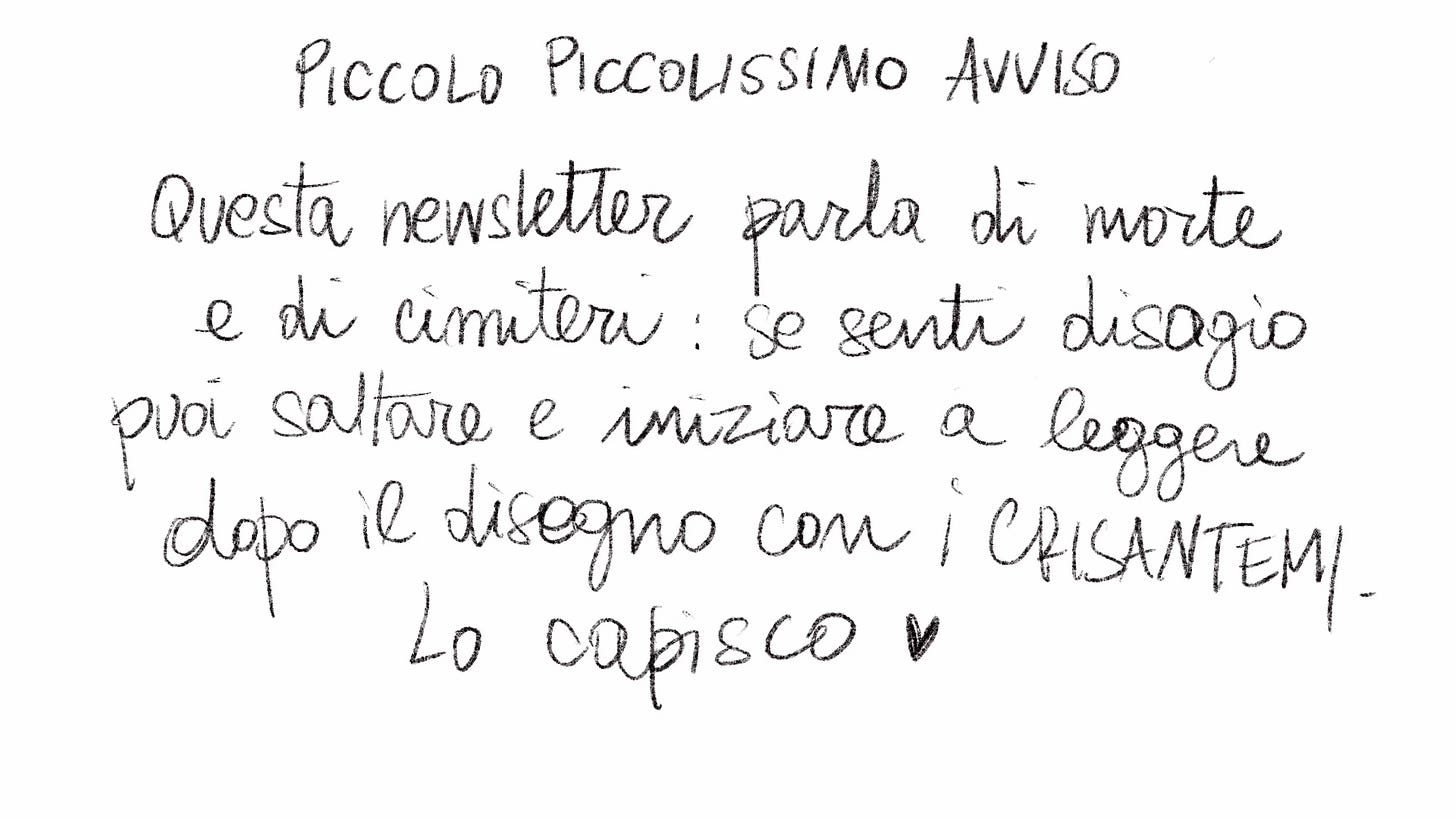 PICCOLO PICCOLISSIMO AVVISO
Questa newsletter parla di morte
e di cimiteri : se senti disagio
puoi saltare e iniziare a leggere
dopo il disegno con i CRISANTEMI.
Lo capisco ♥